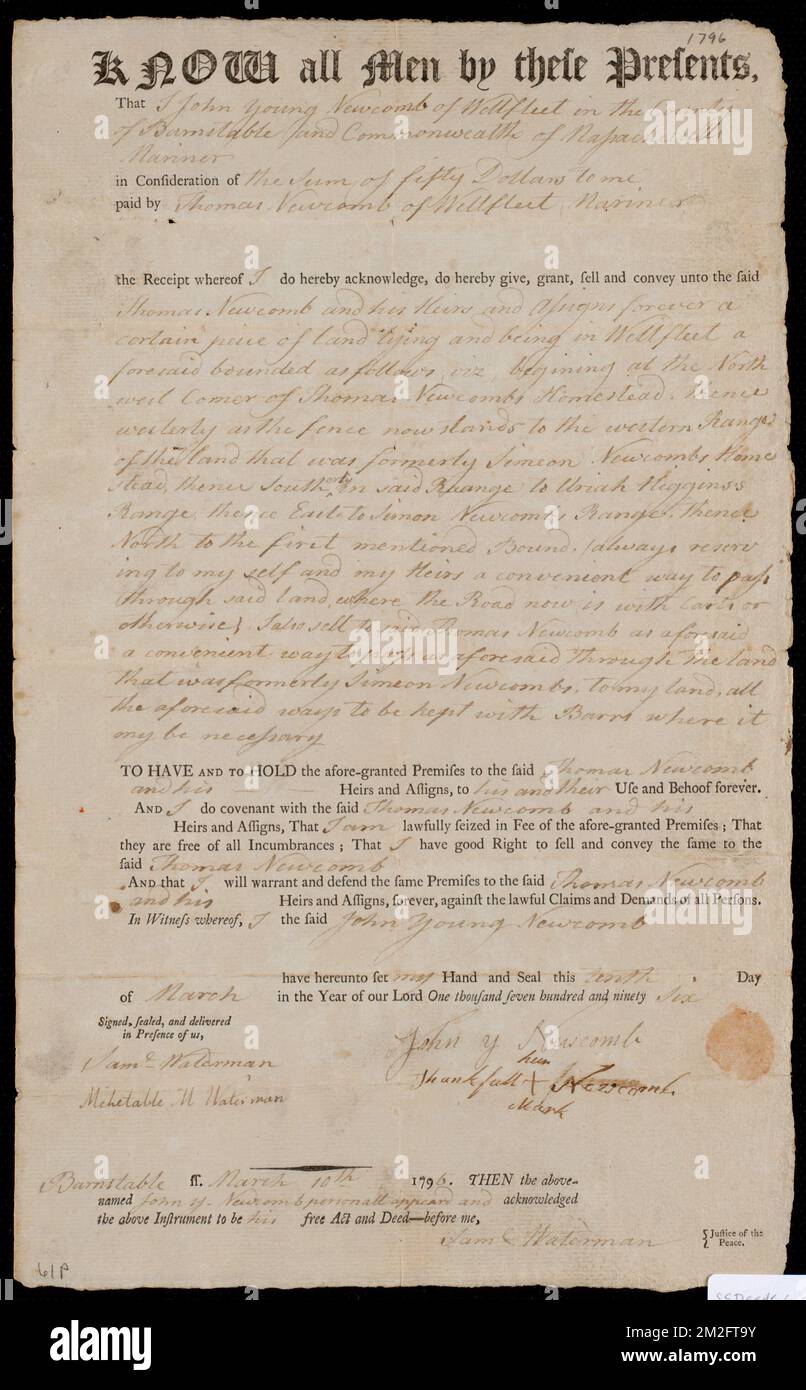 1796
KNOW all Men by theſe Preſents,
That I John Young Newcomb of Wellfleet in the County
of Barnstable and Commonwealth of Massachusetts
Mariner
in Conſideration of the Sum of fifty Dollars to me
paid by Thomas Newcomb of Wellfleet Mariner
the Receipt whereof I do hereby acknowledge, do hereby give, grant, ſell and convey unto the ſaid
Thomas Newcomb and his Heirs and Assigns forever a
certain peice of land lying and being in Wellfleet a
foresaid bounded as follows, viz, begining at the North
west Corner of Thomas Newcombs Homestead, thence
westerly as the fence now stands to the western Range
of the land that was formerly Simeon Newcombs Home
stead, thence South erly in said Raange to Uriah Higgins's
Range, thence East to Simon Newcombs Range, Thence
North to the first mentioned Bound, (always reserv
ing to my self and my Heirs a convenient way to pass
through said land, where the Road now is with Carts or
otherwise) I also sell to said Thomas Newcomb as aforesaid
a convenient way to pass as aforesaid through the land
that was formerly Simeon Newcombs, to my land, all
the aforesaid ways to be kept with Barrs where it
my be necessary
TO HAVE AND TO HOLD the afore-granted Premiſes to the ſaid Thomas Newcomb
and his Heirs and Aſſigns, to his and their Uſe and Behoof forever.
AND I do covenant with the ſaid Thomas Newcomb and his
Heirs and Aſſigns, That I am lawfully ſeized in Fee of the afore-granted Premiſes ; That
they are free of all Incumbrances ; That I have good Right to ſell and convey the ſame to the
ſaid Thomas Newcomb
AND that I will warrant and defend the ſame Premiſes to the ſaid Thomas Newcomb
and his Heirs and Aſſigns, forever, againſt the lawful Claims and Demands of all Perſons.
In Witneſs whereof, I the ſaid John Young Newcomb
have hereunto ſet my Hand and Seal this tenth Day
of March in the Year of our Lord One thouſand ſeven hundred and ninety Six
Signed, ſealed, and delivered
in Preſence of us,
John Y Newcomb
Sam<sup>l</sup> Waterman
her
Thankfull + Newcomb
Mark
Mehetable M Waterman
Barnstable ſſ. March 10th 1796. THEN the above-
named John Y. Newcomb personall appeard and acknowledged
the above Inſtrument to be his free Act and Deed—before me,
Sam<sup>l</sup> Waterman Juſtice of the
Peace.
61P
alamy
Image ID: 2M2FT9Y
www.alamy.com